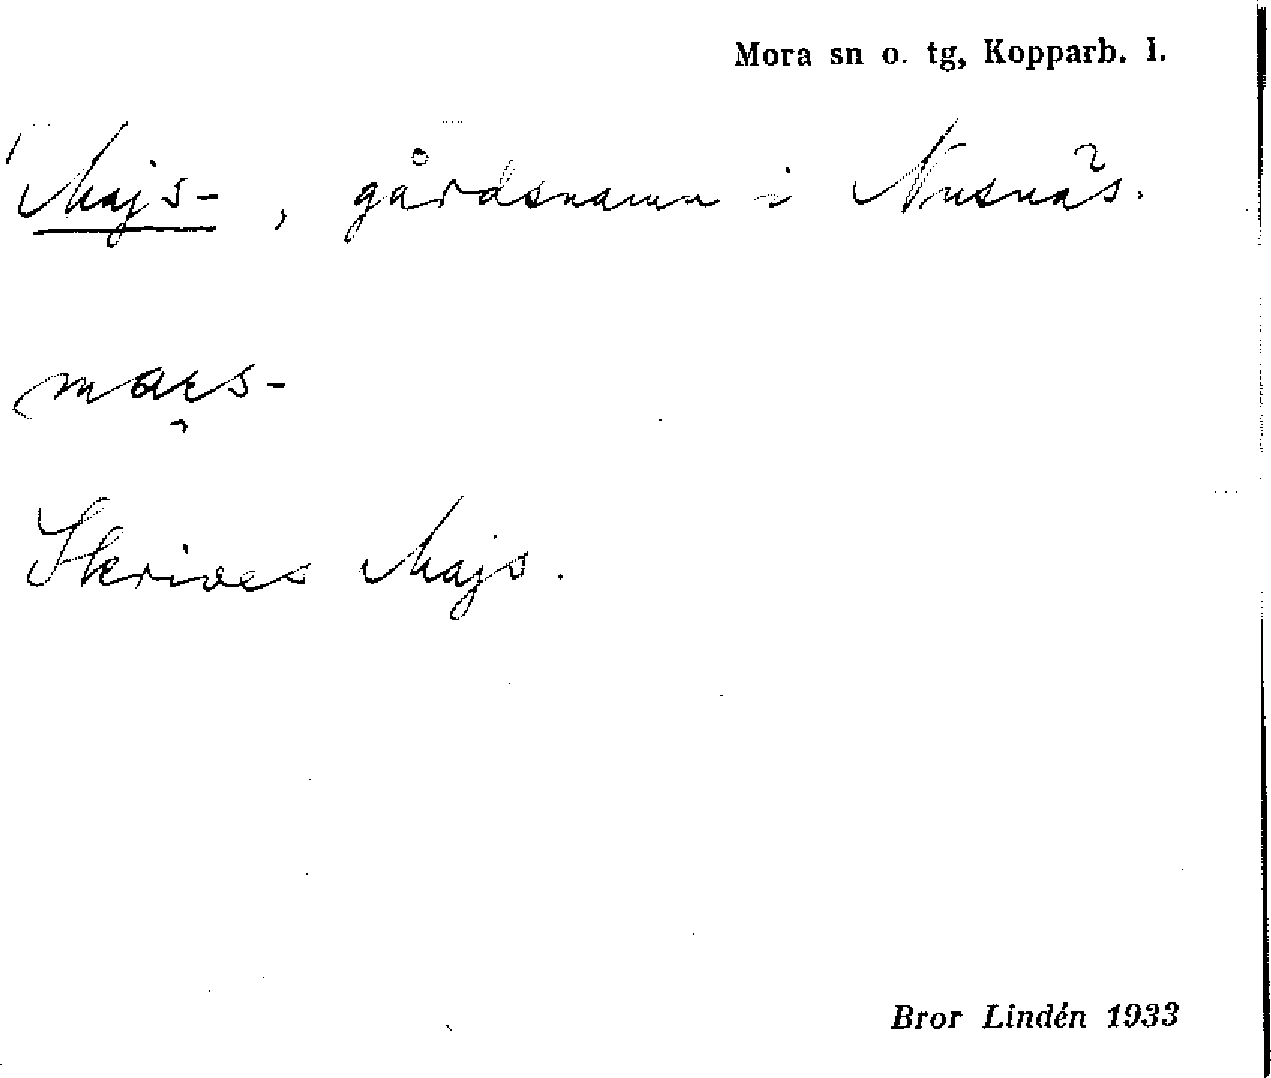 Mora sn o. tg, Kopparb. l.
Majs-, gårdsnamn i Nusnäs.
maes-
Skrives Majs.
Bror Lindén 1933